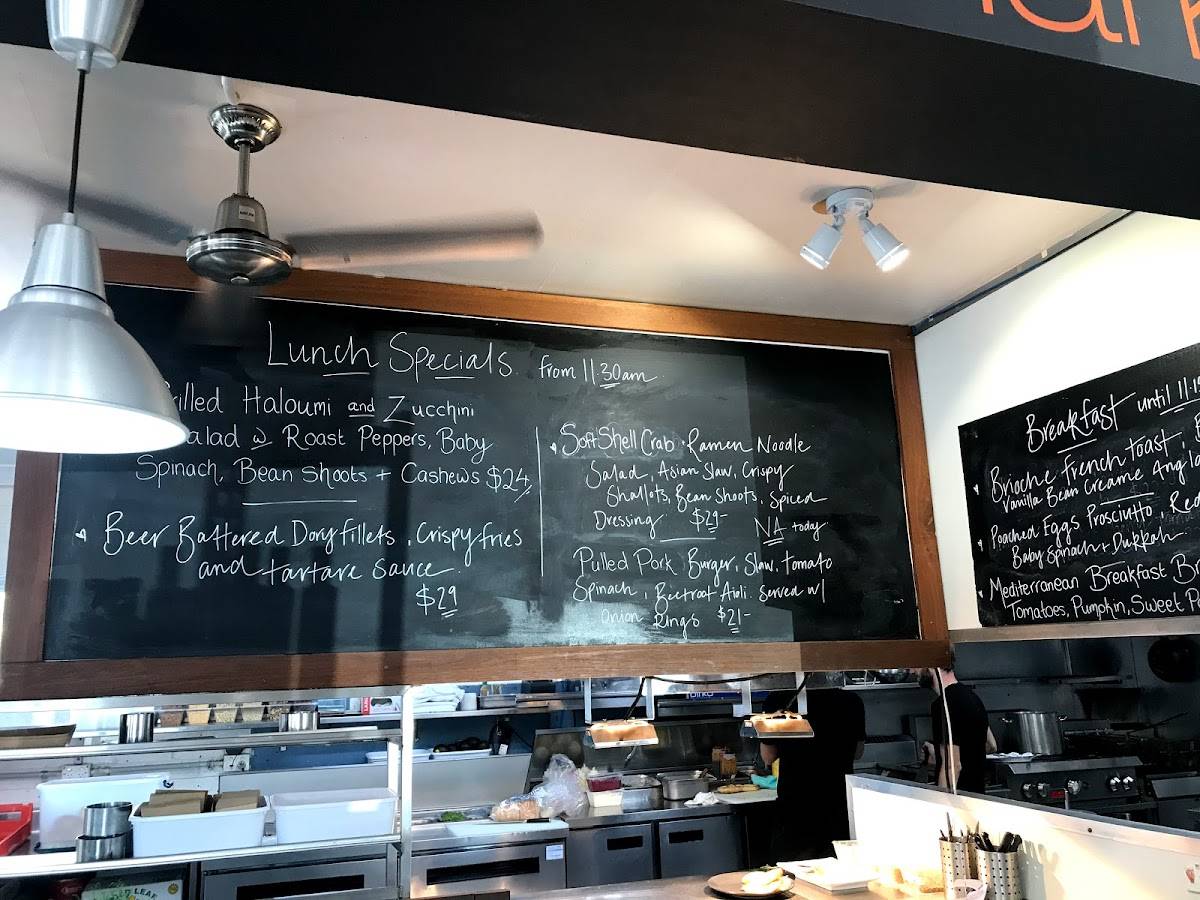 Lunch Specials from 11.30am
rilled Haloumi and Zucchini
alad w Roast Peppers, Baby
Spinach, Bean Shoots + Cashews $24
Beer Battered Dory fillets, Crispy fries
and tartare sauce
$29
Soft Shell Crab Ramen Noodle
Salad, Asian Slaw, Crispy
Shallots, Bean Shoots, Spiced
Dressing $29- NA today
Pulled Pork Burger, Slaw, Tomato
Spinach, Beetroot Aioli. Served w/
Onion Rings $21-
Breakfast until 11.1
Brioche french toast,
Vanilla Bean Creame Angla
Poached Eggs Prosciutto, Red
Baby Spinach + Dukkah
Mediterranean Breakfast Br
Tomatoes, Pumpkin, Sweet P
LEAF